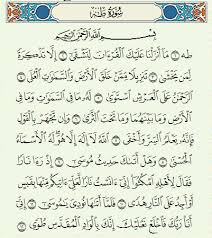 سُورَةُ طه
بِسْمِ ٱللَّهِ ٱلرَّحْمَٰنِ ٱلرَّحِيمِ
طه ۝ مَآ أَنزَلْنَا عَلَيْكَ ٱلْقُرْءَانَ لِتَشْقَىٰٓ ۝ إِلَّا تَذْكِرَةً
لِّمَن يَخْشَىٰ ۝ تَنزِيلًا مِّمَّنْ خَلَقَ ٱلْأَرْضَ وَٱلسَّمَٰوَٰتِ ٱلْعُلَى ۝
ٱلرَّحْمَٰنُ عَلَى ٱلْعَرْشِ ٱسْتَوَىٰ ۝ لَهُۥ مَا فِى ٱلسَّمَٰوَٰتِ وَمَا فِى
ٱلْأَرْضِ وَمَا بَيْنَهُمَا وَمَا تَحْتَ ٱلثَّرَىٰ ۝ وَإِن تَجْهَرْ بِٱلْقَوْلِ
فَإِنَّهُۥ يَعْلَمُ ٱلسِّرَّ وَأَخْفَى ۝ ٱللَّهُ لَآ إِلَٰهَ إِلَّا هُوَ لَهُ ٱلْأَسْمَآءُ
ٱلْحُسْنَىٰ ۝ وَهَلْ أَتَىٰكَ حَدِيثُ مُوسَىٰٓ ۝ إِذْ رَءَا نَارًا
فَقَالَ لِأَهْلِهِ ٱمْكُثُوٓا۟ إِنِّىٓ ءَانَسْتُ نَارًا لَّعَلِّىٓ ءَاتِيكُم مِّنْهَا بِقَبَسٍ
أَوْ أَجِدُ عَلَى ٱلنَّارِ هُدًى ۝ فَلَمَّآ أَتَىٰهَا نُودِىَ يَٰمُوسَىٰٓ ۝ إِنِّىٓ
أَنَا۠ رَبُّكَ فَٱخْلَعْ نَعْلَيْكَ إِنَّكَ بِٱلْوَادِ ٱلْمُقَدَّسِ طُوًى ۝